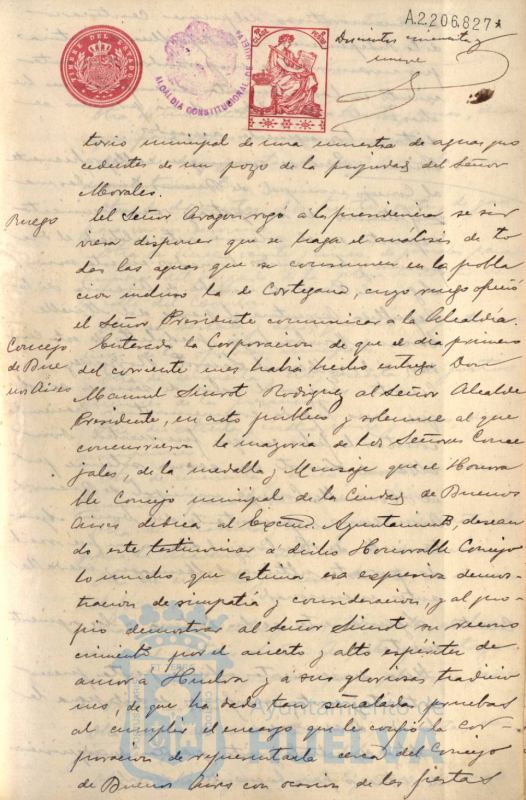 A.2.206.827*
TIMBRE DEL ESTADO
ALCALDÍA CONSTITUCIONAL DE HUELVA
Doscientos cincuenta y
nueve
torio municipal de una muestra de aguas, pro
cedentes de un pozo de la propiedad del Señor
Morales.
Ruego
El Señor Aragon rogó á la presidencia se sir
viera disponer que se haga el análisis de to
das las aguas que se consumen en la pobla
cion incluso la de Cortegana, cuyo ruego ofreció
el Señor Presidente comunicar á la Alcaldía.
Concejo
de Bue
nos Aires
Enterada la Corporacion de que el dia primero
del corriente mes habia hecho entrega Don
Manuel Siurot Rodriguez al Señor Alcalde
Presidente, en acto público y solemne al que
concurrieron la mayoria de los Señores Conce
jales, de la medalla y Mensaje que el Honora
ble Concejo municipal de la Ciudad de Buenos
Aires dedica al Excmo. Ayuntamiento, desean
do este testimoniar á dicho Honorable Concejo
lo mucho que estima esa expresiva demos-
tracion de simpatía y consideracion, y al pro-
pio demostrar al Señor Siurot su recono
cimiento por el acierto y alto espíritu de
amor á Huelva y á sus gloriosas tradicio
nes, de que ha dado tan señaladas pruebas
al cumplir el encargo que le confió la Cor-
poracion de representarla cerca del Concejo
de Buenos Aires con ocasion de las fiestas
Ayuntamiento de
HUELVA